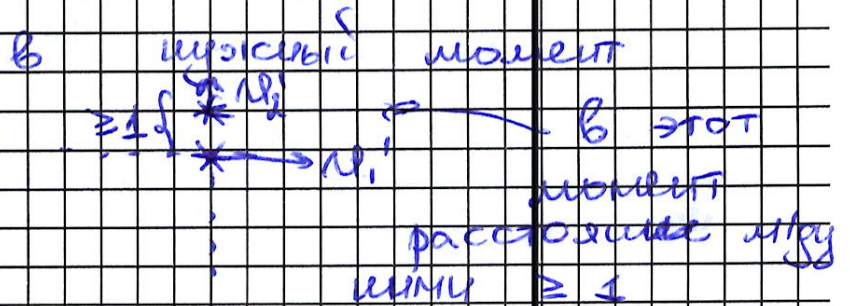 в нужный момент
M₂'
≥1{
M₁'
в этот
момент
расстояние м/ду
ними ≥ 1